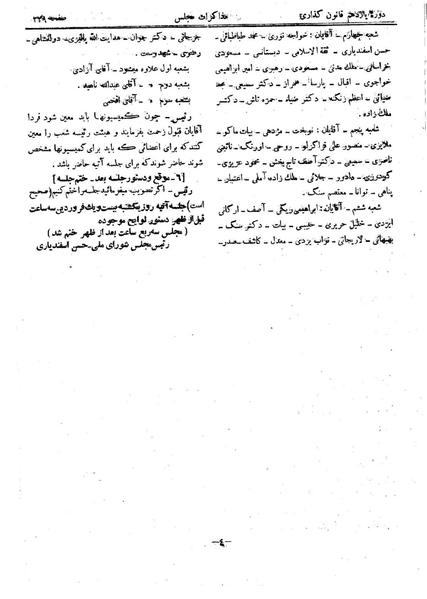 دورهٔ یازدهم قانون گذاری
مذاکرات مجلس
صفحه ۲۲۹
شعبه چهارم - آقایان: خواجه نوری - محمد طباطبائی -
حسن اسفندیاری - ثقة الاسلامی - دبستانی - مسعودی
خراسانی - ملک مدنی - مسعودی - رهبری - امیر ابراهیمی
خواجوی - اقبال - پارسا - - دکتر سمیعی - محمد
ضیائی - اعظم زنگنه - دکتر ضیاء - حمزه تاش - دکتر
ملک زاده.
شعبه پنجم - آقایان: نوبخت - مژدهی - بیات ماکو -
ملایری - منصور علی قراگزلو - روحی - اورنگ - نائینی
ناصری - سمیعی - دکتر آصف تاج بخش - محمود
گودرزی - دادور - جلائی - ملک زاده آملی - اعتبار -
پناهی - توانا - معتصم سنگ.
شعبه ششم - آقایان: ابراهیمی ریگی - آصف - ارگانی
ایزدی - خلیل حریری - حبیبی - بیات - دکتر سنگ -
بهبهانی - لاریجانی - نواب یزدی - معدل - کاشف - صدر -
جرجانی - دکتر جوان - هدایت الله پالیزی - دولتشاهی -
رضوی - شهدوست -
بشعبه اول علاوه میشود - آقای آزادی
بشعبه دوم » - آقای عبدالله ناهید.
بشعبه سوم » - آقای افخمی
رئیس - چون کمیسیونها باید معین شود فردا
آقایان قبول زحمت بفرمایند و هیئت رئیسه شعب را معین
کنند که برای اعضائی که باید برای کمیسیونها مشخص
شوند حاضر شوند که برای جلسه آتیه حاضر باشد.
[۶ - موقع و دستور جلسه بعد - ختم جلسه]
رئیس - اگر تصویب میفرمائید جلسه را ختم کنیم (صحیح
است) جلسه آتیه روز یکشنبه بیست و یک فروردین سه ساعت
قبل از ظهر دستور لوایح موجوده
(مجلس سه ربع ساعت بعد از ظهر ختم شد)
رئیس مجلس شورای ملی - حسن اسفندیاری
-٤-